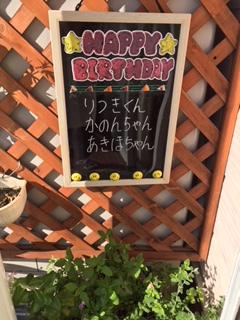 HAPPY
BIRTHDAY
りつきくん
かのんちゃん
あきほちゃん